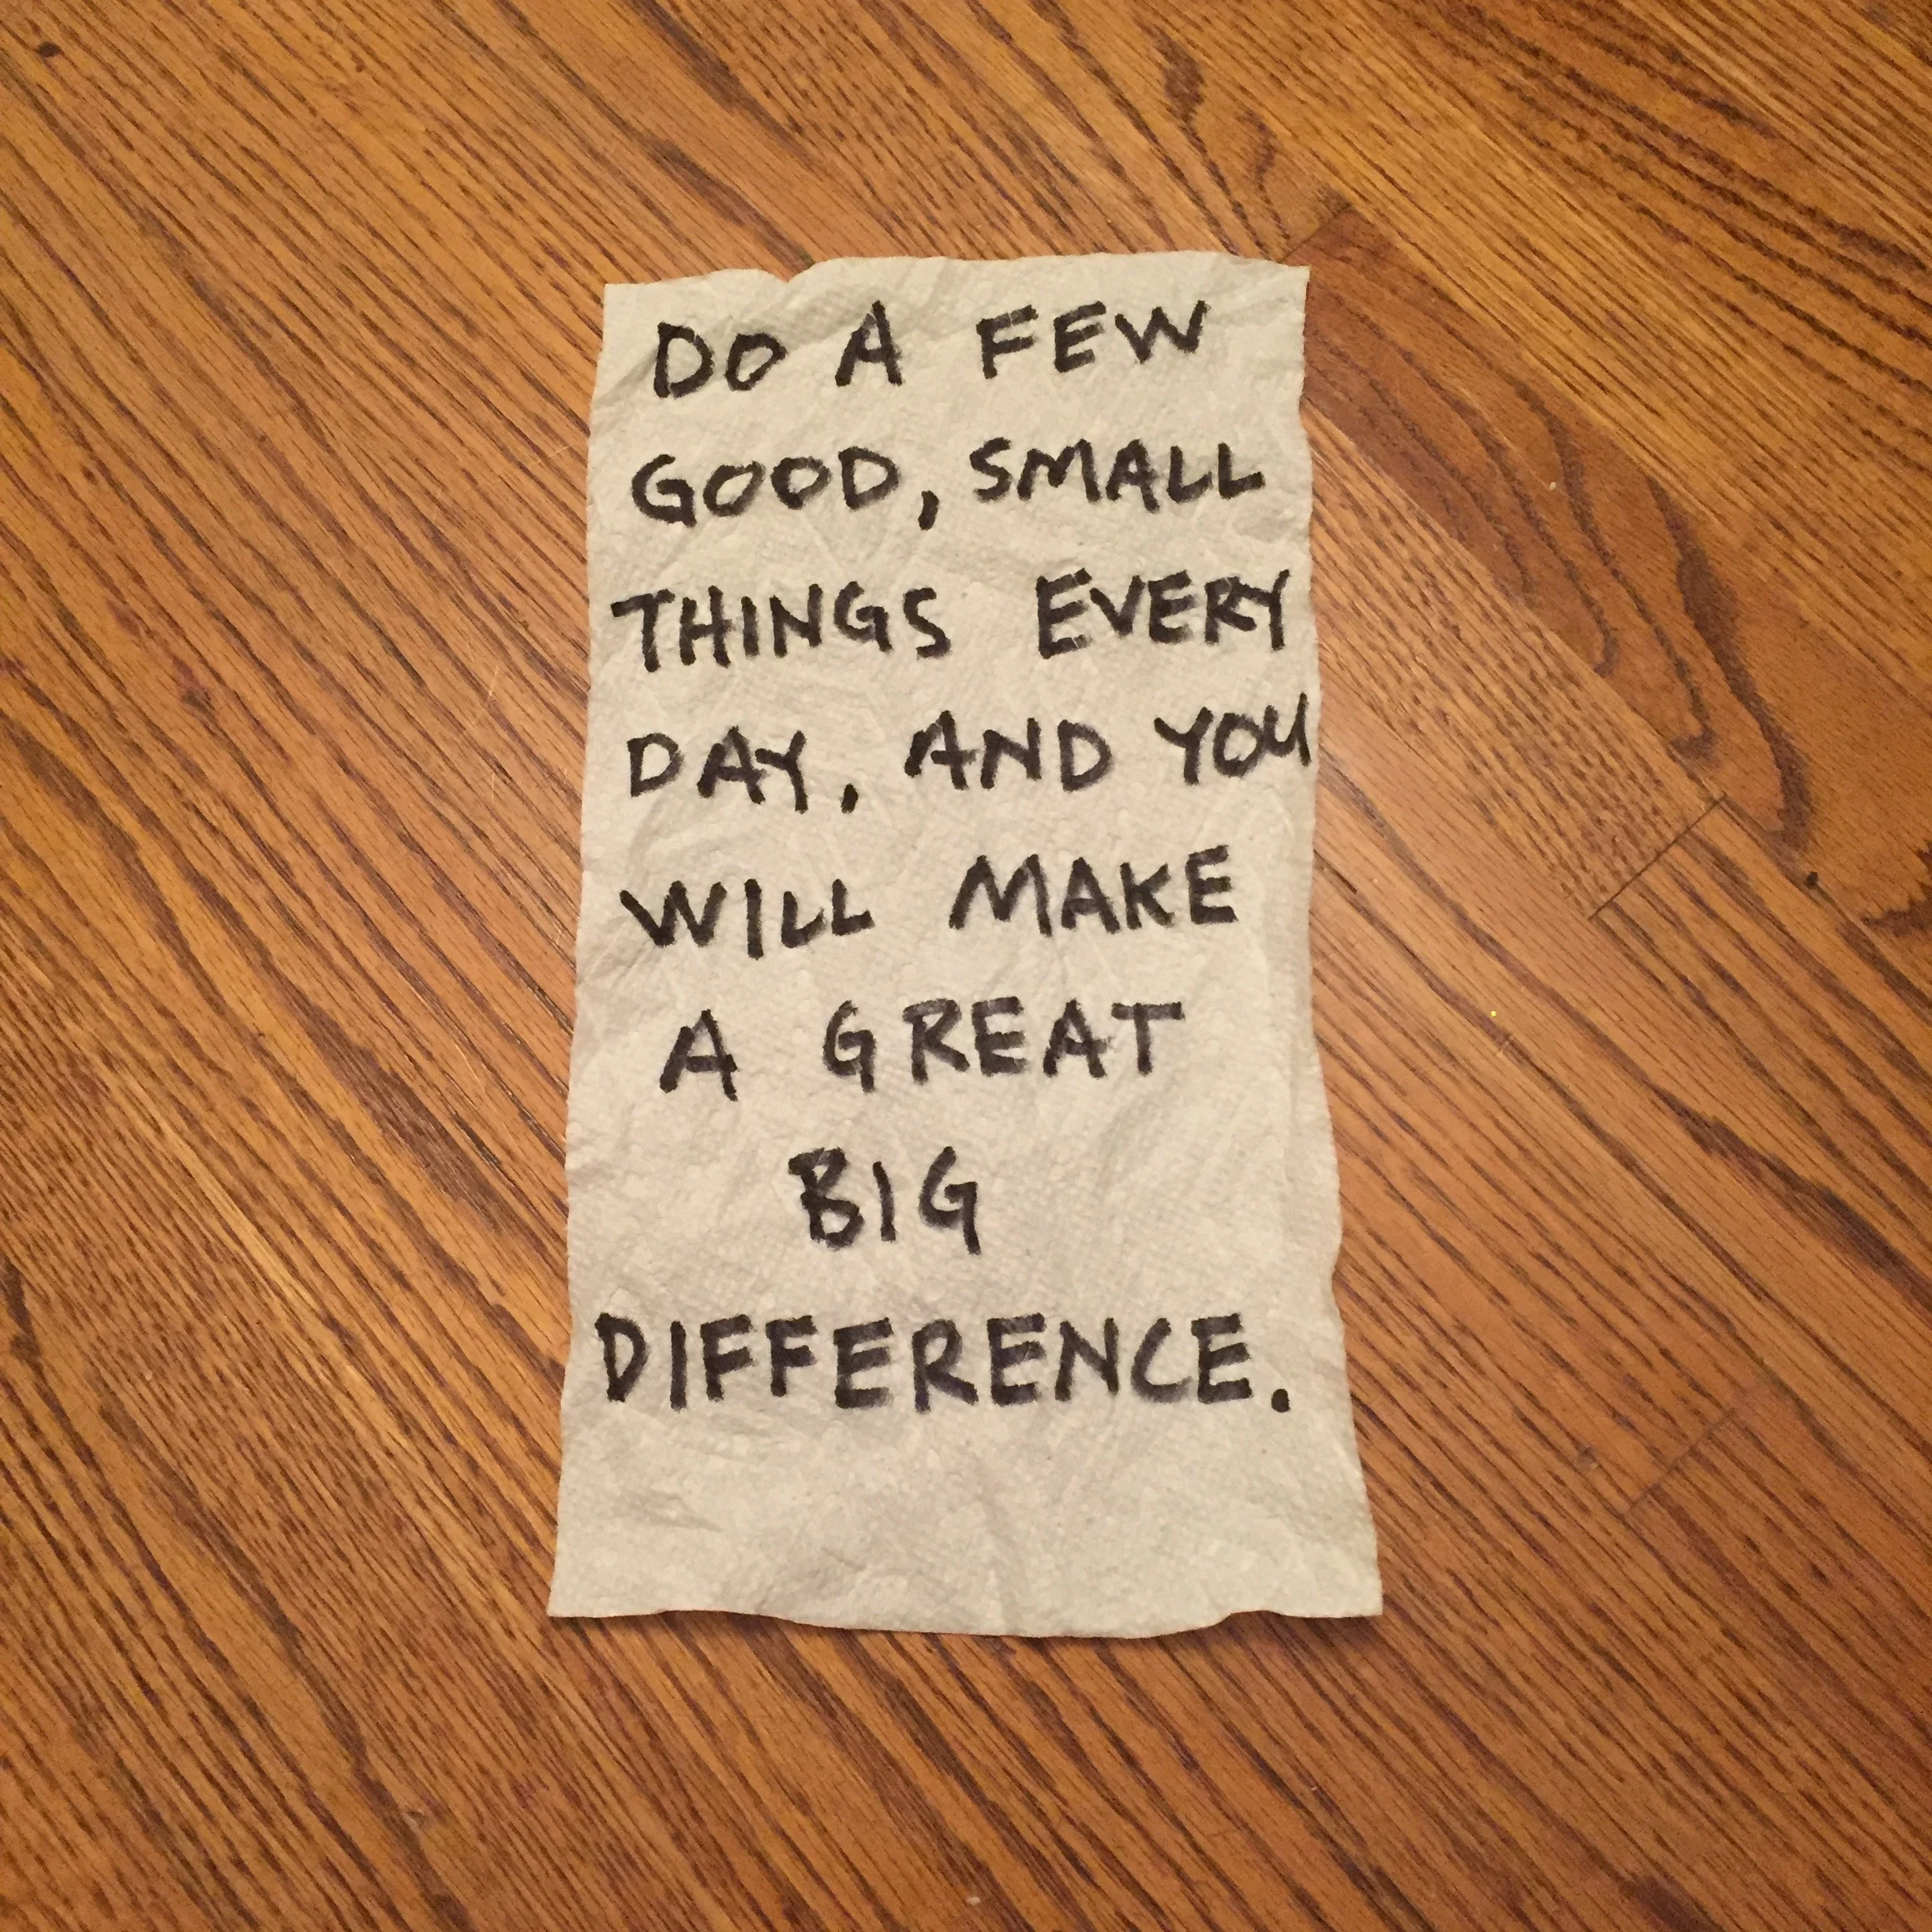 DO A FEW
GOOD, SMALL
THINGS EVERY
DAY, AND YOU
WILL MAKE
A GREAT
BIG
DIFFERENCE.